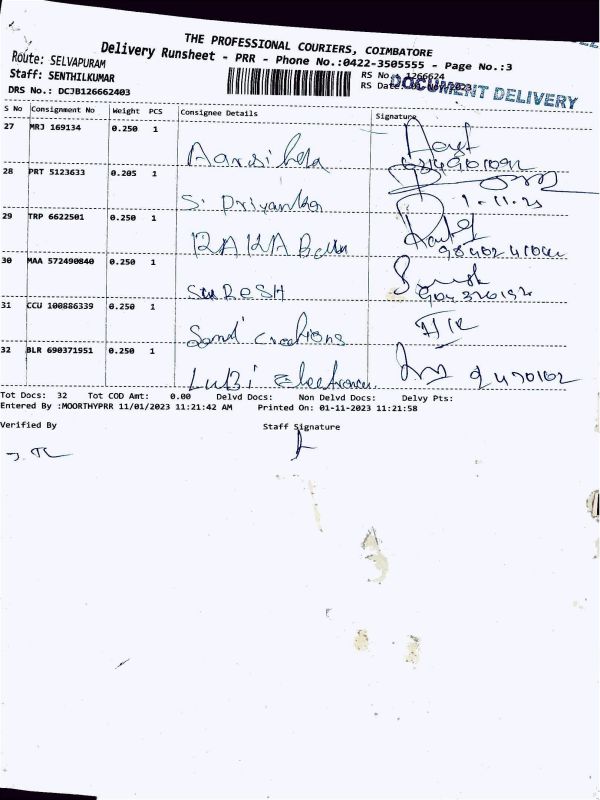 THE PROFESSIONAL COURIERS, COIMBATORE
Delivery Runsheet - PRR - Phone No.:0422-3505555 - Page No.:3
Route: SELVAPURAM
Staff: SENTHILKUMAR
RS No.: 1266624
DRS No.: DCJB126662403
RS Date: 01 Nov 2023
DOCUMENT DELIVERY
S No Consignment No Weight PCS Consignee Details Signature
27 MRJ 169134 0.250 1
28 PRT 5123633 0.205 1 S. Priyanka
1-11-23
29 TRP 6622501 0.250 1
30 MAA 572490840 0.250 1 SURESH
31 CCU 100886339 0.250 1 Creations
32 BLR 690371951 0.250 1 LUBI Electronics
Tot Docs: 32 Tot COD Amt: 0.00 Delvd Docs: Non Delvd Docs: Delvy Pts:
Entered By :MOORTHYPRR 11/01/2023 11:21:42 AM Printed On: 01-11-2023 11:21:58
Verified By Staff Signature